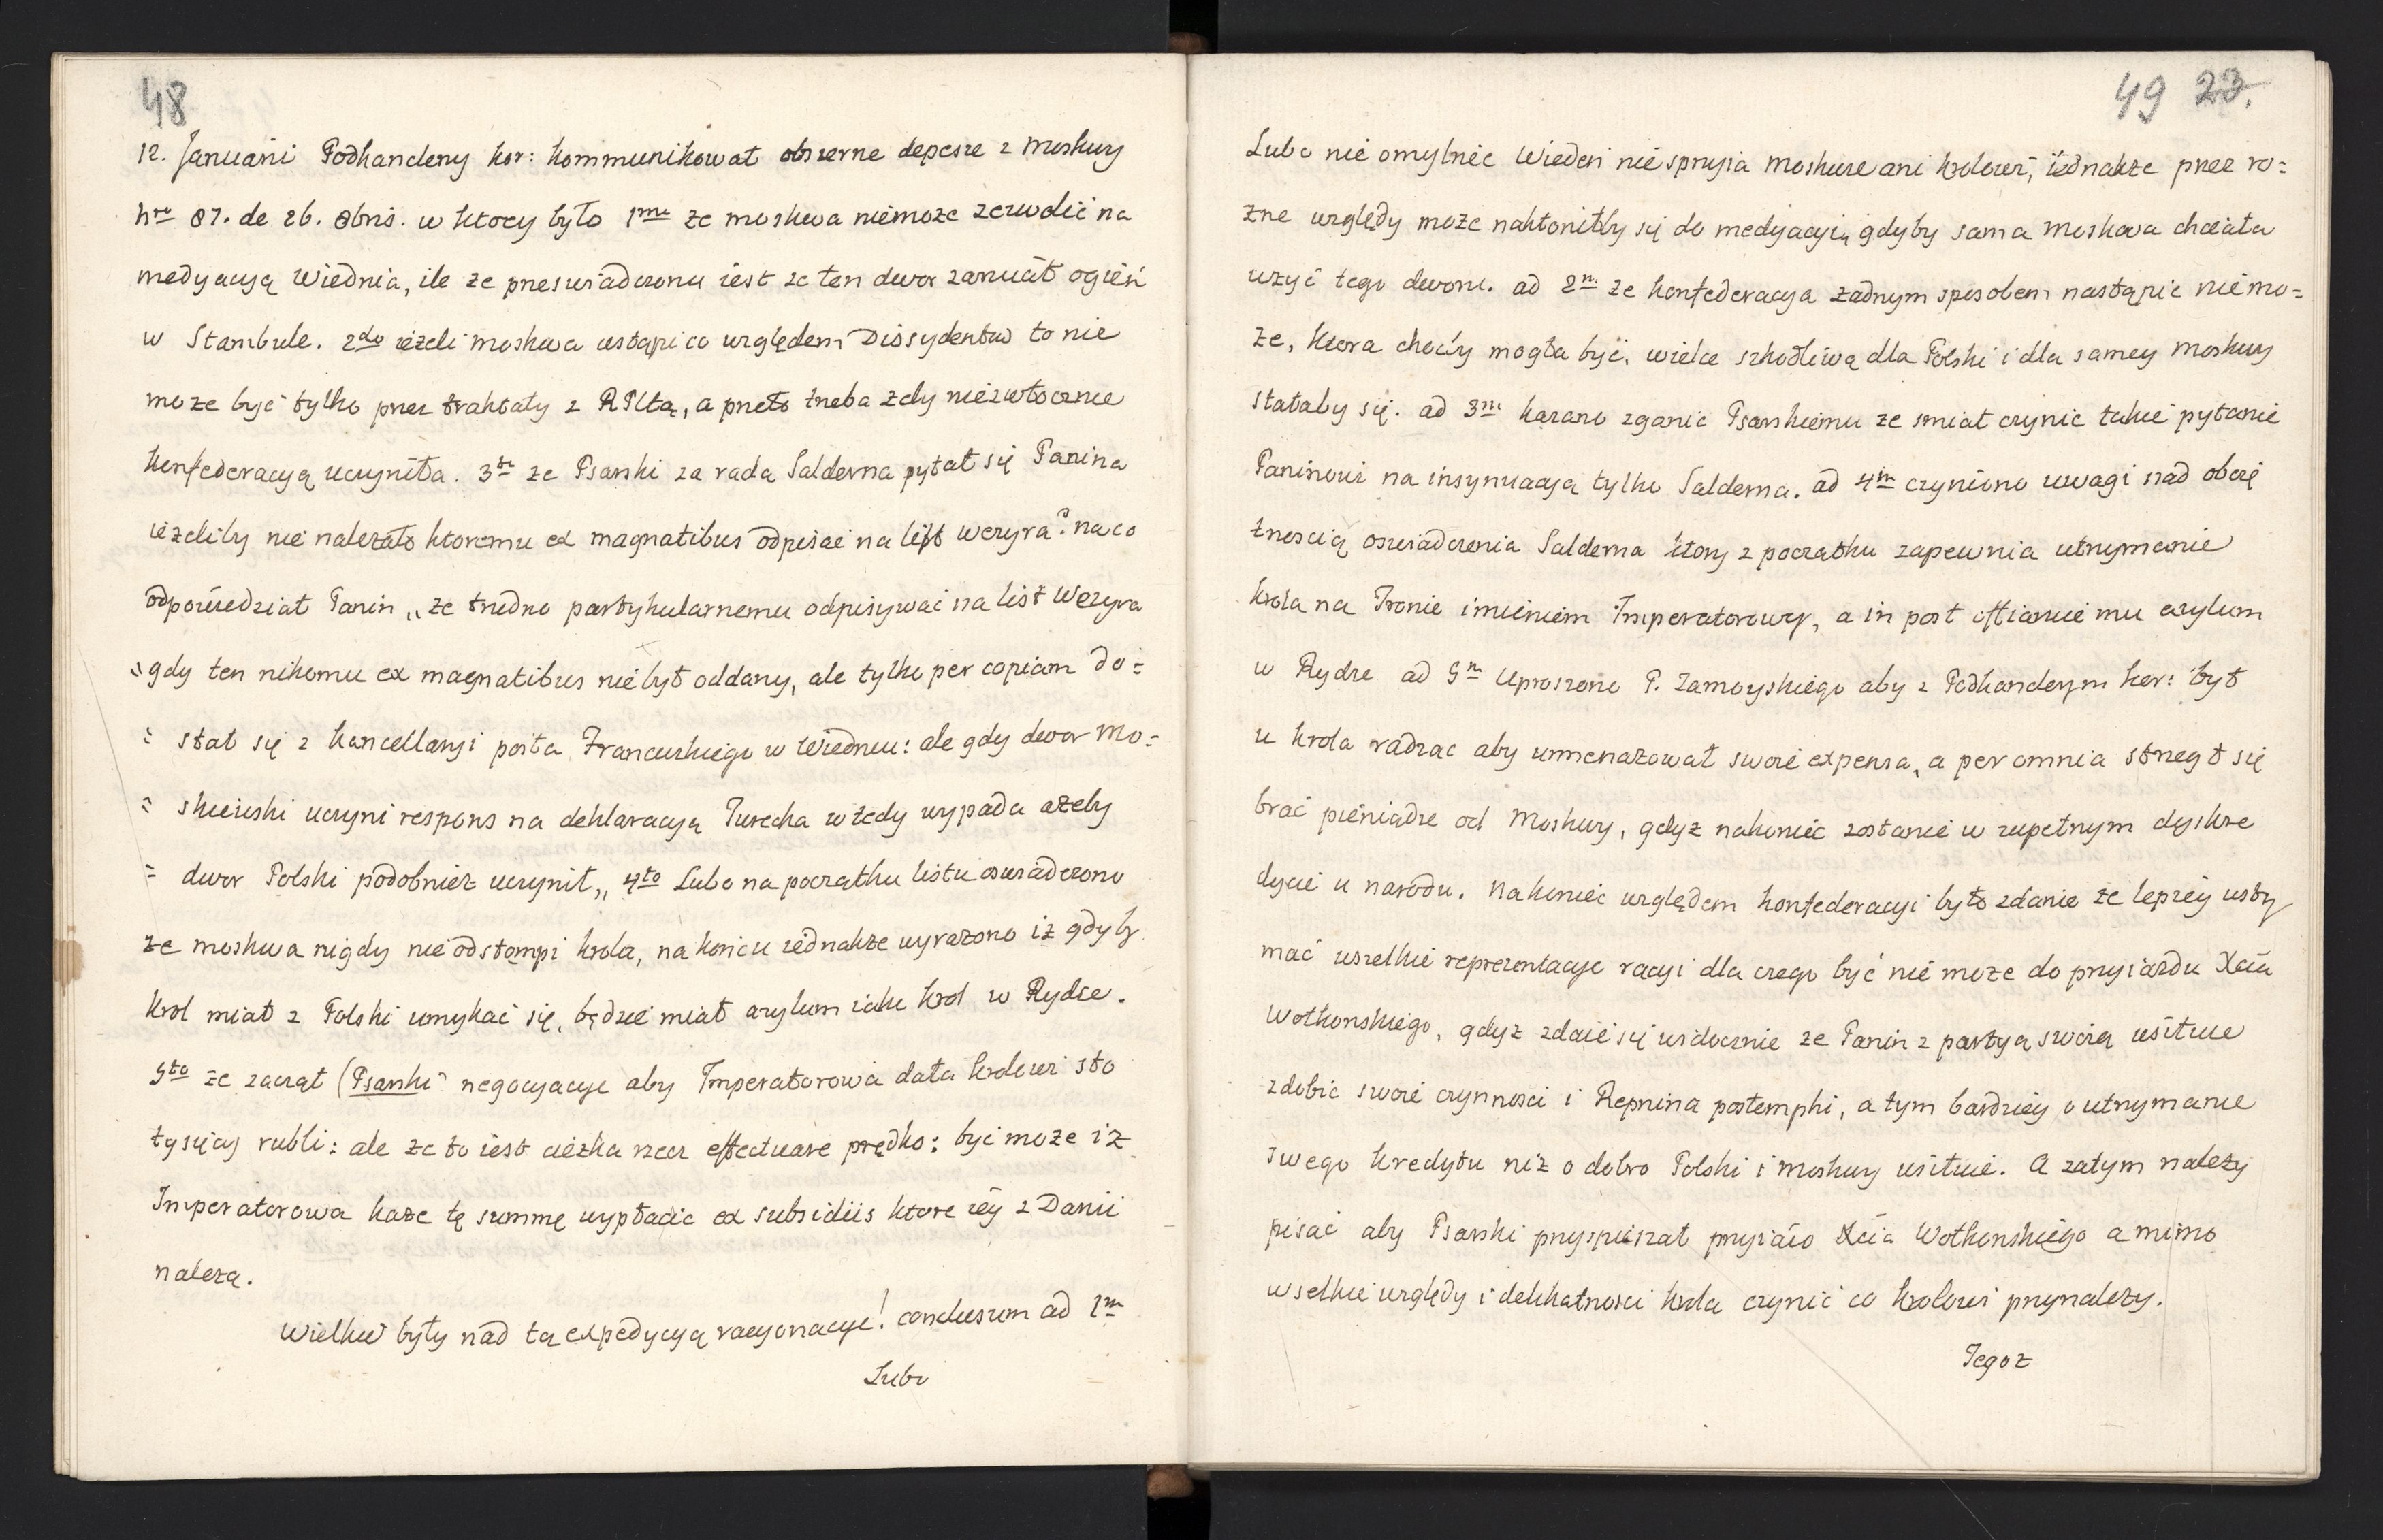 48
12. Januarii Podkanclerzy kor: kommunikował obszerne depesze z Moskwy
nro 87. de 26. 8bris. w ktorey było 1mo że moskwa niemoże zezwolić na
medyacyą Wiednia, ile że przeswiadczona iest że ten dwor zarzucił ogień
w Stambule. 2do ieżeli moskwa ustąpi co względem Dissydentow to nie
może być tylko przez traktaty z RPltą, a przeto trzeba żeby niezwłocznie
konfederacyą uczyniła. 3tio że Psarski za radą Salderna pytał się Panina
ieżeliby nie należało ktoremu ex magnatibus odpisać na list wezyra? na co
odpowiedział Panin „że trudno partykularnemu odpisywać na list Wezyra
„gdy ten nikomu ex magnatibus nie był oddany, ale tylko per copiam do=
= stał się z kancellaryi posła Francuskiego w Wiedniu: ale gdy dwor Mo=
= skiewski uczyni respons na deklaracyą Turecką wtedy wypada ażeby
= dwor Polski podobnież uczynił„ 4to Lubo na początku listu oswiadczono
że moskwa nigdy nie odstąmpi krola, na końcu iednakże wyrażono iż gdyby
krol miał z Polski umykać się, będzie miał azylum iako krol w Rydze.
5to że zaczął (Psarski negocyacye aby Imperatorowa dała krolowi sto
tysięcy rubli: ale że to iest cięzka rzecz effectuare prędko: być może iż
Imperatorowa każe tę summę wypłacić ex subsidiis ktore iey z Danii
należą.
Wielkie były nad tą expedycyą racyonacye! conclusum ad 1m
Lubo
49 23.
Lubo nie omylnie Wiedeń nie sprzyia moskwie ani krolowi, iednakże przez ro=
żne względy może nakłoniłby się do medyacyi, gdyby sama moskwa chciała
użyć tego dworu. ad 2m że konfederacya żadnym sposobem nastąpić nie mo=
że, ktora choćby mogła być, wielce szkodliwą dla Polski i dla samey moskwy
stałaby się. ad 3m kazano zganić Psarskiemu że smiał czynić takie pytanie
Paninowi na insynuacyą tylko Salderna. ad 4m czyniono uwagi nad oboię
tnoscią oswiadczenia Salderna ktory z początku zapewnia utrzymanie
krola na Tronie imieniem Imperatorowy, a in post ofiaruie mu azylum
w Rydze ad 5m Uproszono P. Zamoyskiego aby z Podkanclerzym kor: był
u krola radząc aby unmenażował swoie expensa, a per omnia strzegł się
brać pieniądze od Moskwy, gdyż nakoniec zostanie w zupełnym dyskre
dycie u narodu. Nakoniec względem konfederacyi było zdanie że lepiey wstrzy
mać wszelkie reprezentacye racyi dla czego być nie może do przyiazdu Xcia
Wołkonskiego, gdyż zdaie się widocznie że Panin z partyą swoią usiłuie
zdobić swoie czynnosci i Repnina postempki, a tym bardziey o utrzymanie
swego kredytu niż o dobro Polski i moskwy usiłuie. A zatym należy
pisać aby Psarski przyspieszał przyiazd Xcia Wołkonskiego a mimo
wszelkie względy i delikatnosci krola czynić co krolowi przynależy.
Tegoż